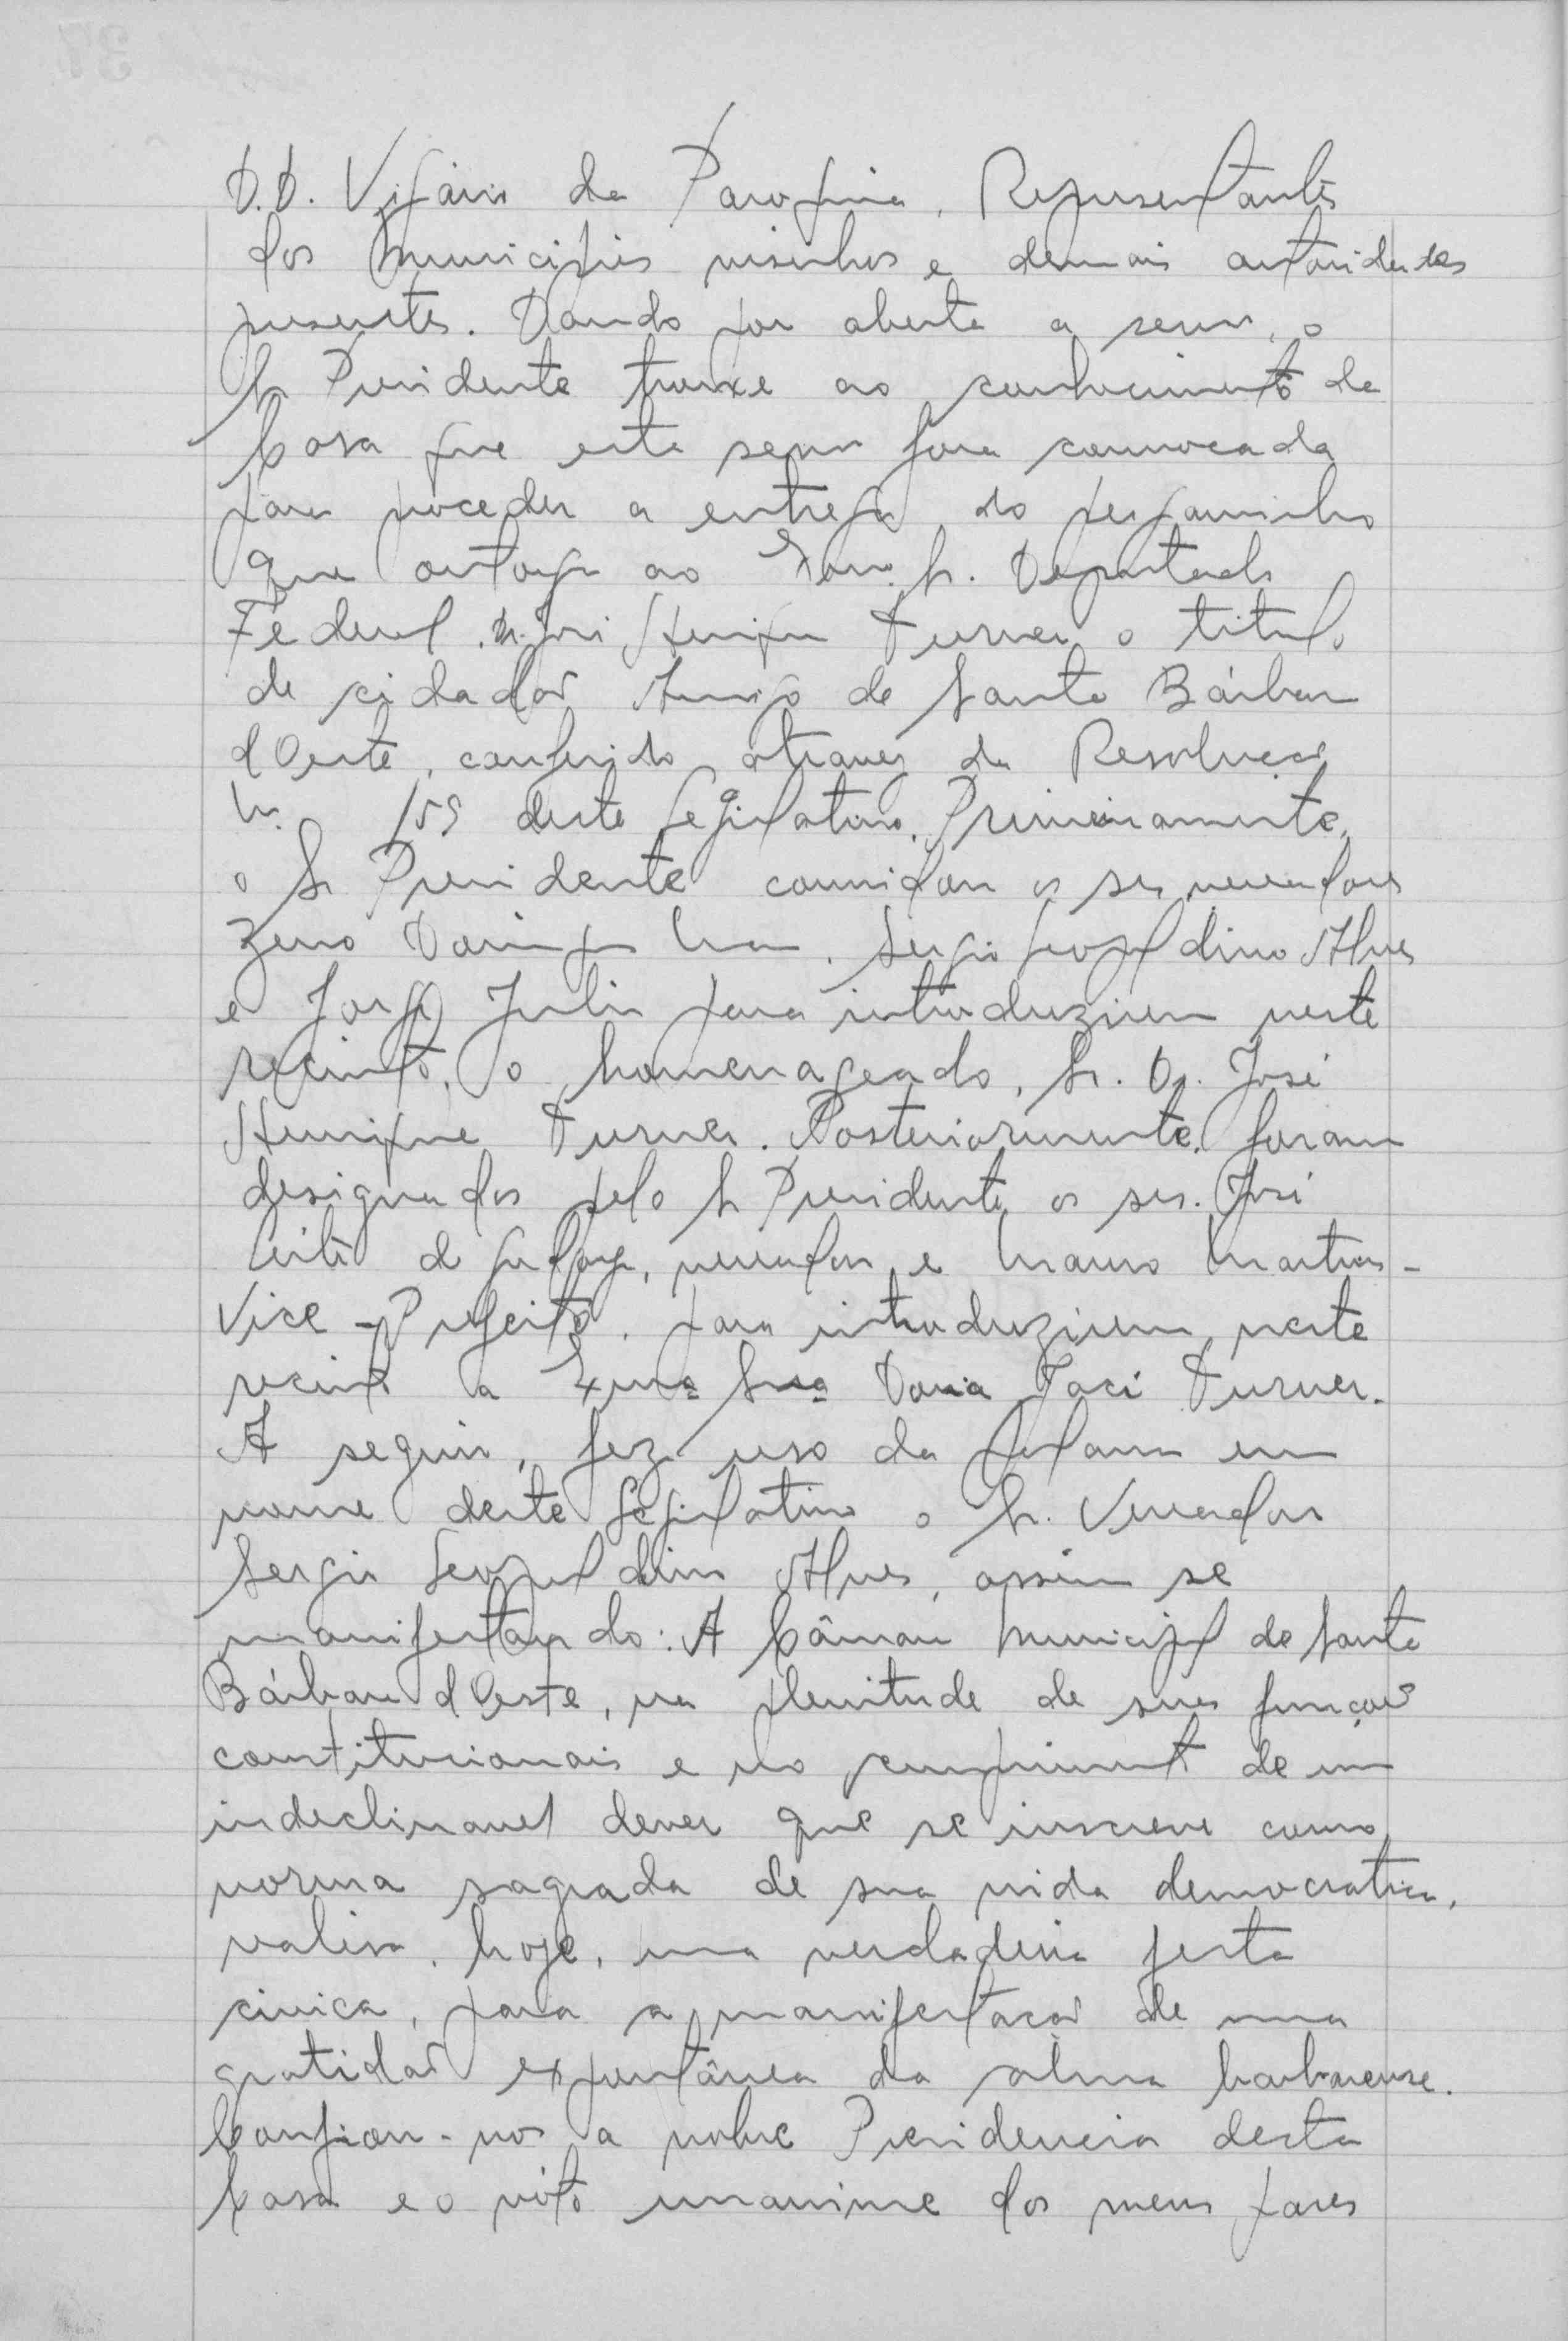 D.D. Vigário da Paroquia, Representantes
dos municipios visinhos e demais autoridades
presentes. Dando por aberta a sessão, o
Sr Presidente trouxe ao conhecimento da
Casa que esta sessão fora convocada
para proceder a entrega do pergaminho
que outorga ao Exmo. Sr. Deputado
Federal Dr. José Henrique Turner o titulo
de cidadão Amigo de Santa Bárbara
d'Oeste, conferido atravez da Resolução
Nº 159 deste Legislativo. Primeiramente,
o Sr Presidente convidou os srs vereadores
Zeno Maia, Sergio Leopoldino Alves
e Jorge Julio para introduzirem neste
recinto, o homenageado, Sr. Dr. José
Henrique Turner. Posteriormente, foram
designados pelo Sr Presidente os srs. José
Leite de Godoy, vereador, e Mauro Martins -
Vice-Prefeito, para introduzirem neste
recinto a Exma Sra Dona Jaci Turner.
A seguir, fez uso da palavra em
nome deste Legislativo o Sr. Vereador
Sergio Leopoldino Alves, assim se
manifestando: A Câmara Municipal de Santa
Bárbara d'Oeste, na plenitude de suas funções
constitucionais e no cumprimento de um
indeclinavel dever que se inscreve como
norma sagrada de sua vida democratica,
realisa, hoje, uma verdadeira festa
civica, para a manifestação de uma
gratidão expontânea da alma barbarense.
Confiou-nos a nobre Presidencia desta
Casa e o vóto unanime dos meus pares